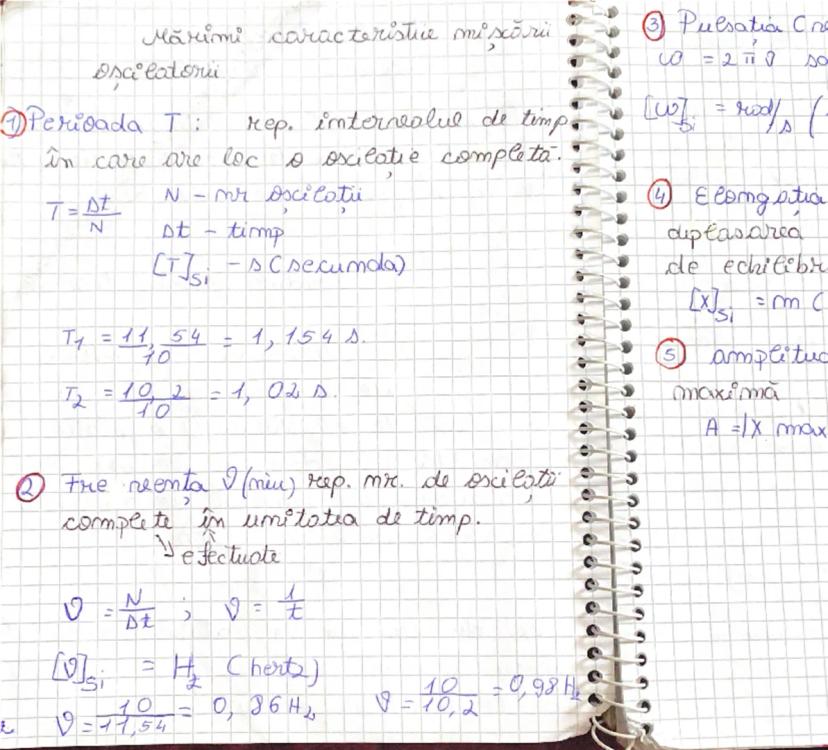 Mărimi caracteristice mișcării
oscilatorii
① Perioada T: rep. intervalul de timp
în care are loc o oscilație completă.
T = Δt/N   N - nr oscilații
Δt - timp
[T]Si - s (secunda)
T1 = 11,54/10 = 1,154 s.
T2 = 10,2/10 = 1,02 s.
② Frecvența ν (niu) rep. nr. de oscilații
complete în unitatea de timp.
↳ efectuate
ν = N/Δt ; ν = 1/t
[ν]Si = Hz (hertz)
ν = 10/11,54 = 0,86 Hz   ν = 10/10,2 = 0,98 Hz
③ Pulsația
ω = 2πν
[ω]Si = rad/s (
④ Elongația
deplasarea
de echilibr
[x]Si = m (
⑤ amplitud
maximă
A = |x max